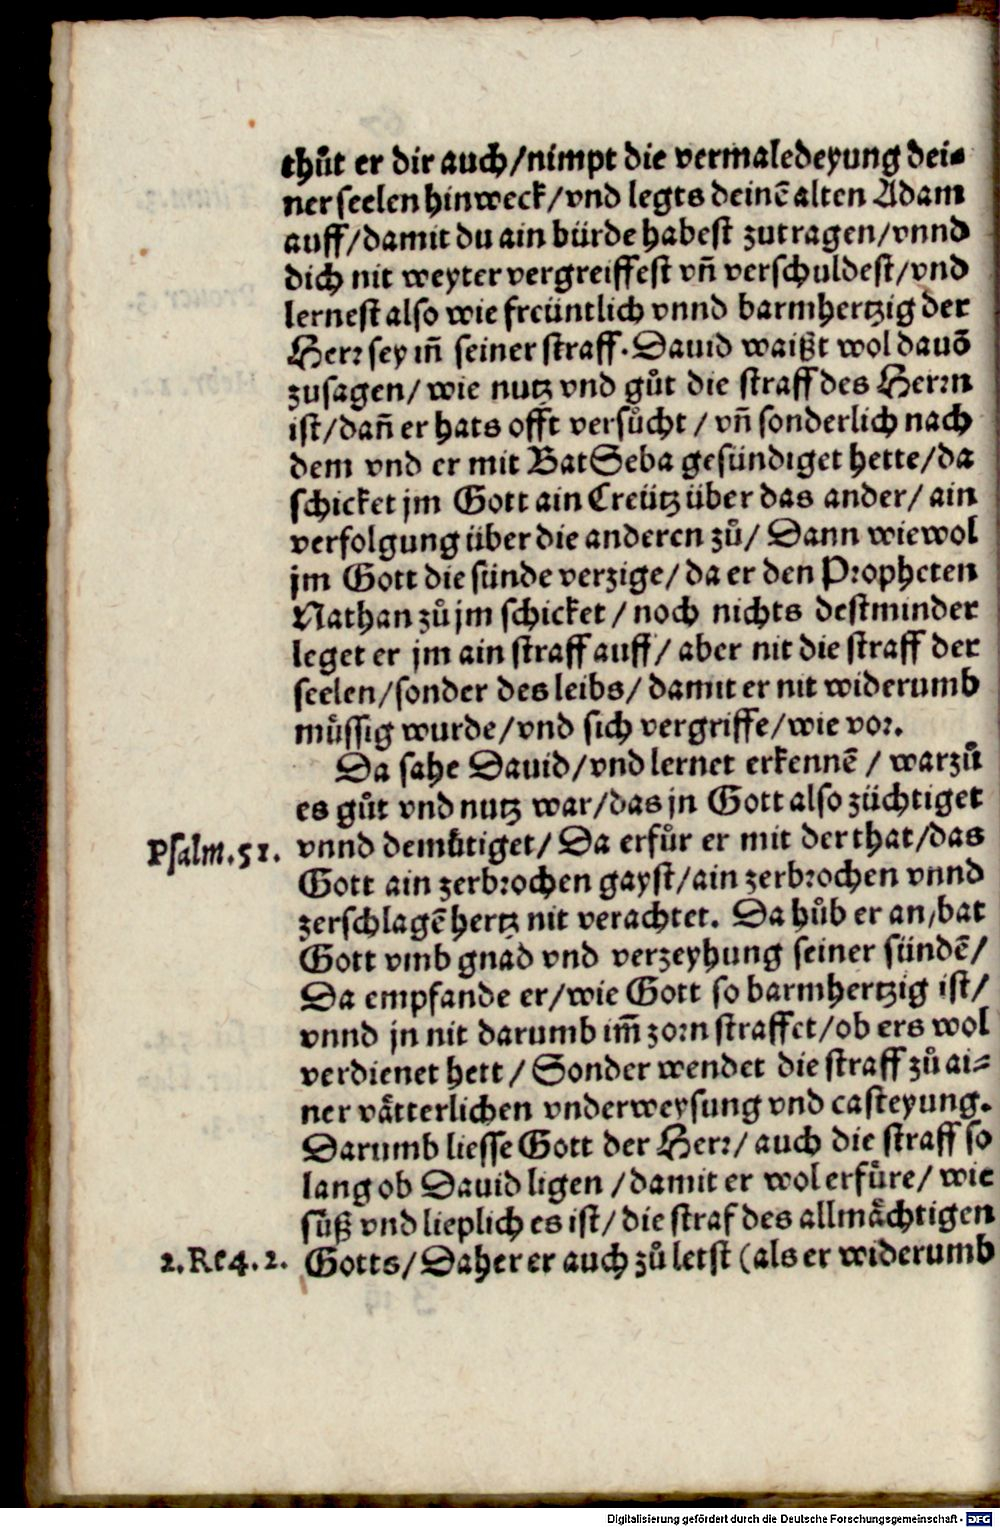 thuͦt er dir auch/nimpt die vermaledeyung dei⸗
ner seelen hinweck/vnd legts deinẽ alten Adam
auff/damit du ain bürde habest zutragen/vnnd
dich nit weyter vergreiffest vñ verschuldest/vnd
lernest also wie freüntlich vnnd barmhertzig der
Herr sey iñ seiner straff. Dauid waißt wol dauõ
zusagen/ wie nutz vnd guͦt die straff des Herrn
ist/dañ er hats offt versuͦcht / vñ sonderlich nach
dem vnd er mit BatSeba gesündiget hette/da
schicket jm Gott ain Creütz über das ander/ ain
verfolgung über die anderen zuͦ/ Dann wiewol
jm Gott die sünde verzige/ da er den Propheten
Nathan zuͦ jm schicket / noch nichts destminder
leget er jm ain straff auff/ aber nit die straff der
seelen/sonder des leibs/ damit er nit widerumb
muͤssig wurde/vnd sich vergriffe/wie vor.
Da sahe Dauid/vnd lernet erkennẽ / warzuͦ
es guͦt vnd nutz war/das jn Gott also züchtiget
Psalm.51. vnnd demuͤtiget/ Da erfuͦr er mit der that/das
Gott ain zerbrochen gayst/ain zerbrochen vnnd
zerschlagẽ hertz nit verachtet. Da huͦb er an/bat
Gott vmb gnad vnd verzeyhung seiner sündẽ/
Da empfande er/wie Gott so barmhertzig ist/
vnnd jn nit darumb im̃ zorn straffet/ob ers wol
verdienet hett / Sonder wendet die straff zuͦ ai⸗
ner vaͤtterlichen vnderweysung vnd casteyung.
Darumb liesse Gott der Herr/ auch die straff so
lang ob Dauid ligen /damit er wol erfuͤre/ wie
suͤß vnd lieplich es ist/ die straf des allmaͤchtigen
2.Reg.2. Gotts/ Daher er auch zuͦ letst (als er widerumb
Digitalisierung gefördert durch die Deutsche Forschungsgemeinschaft - DFG